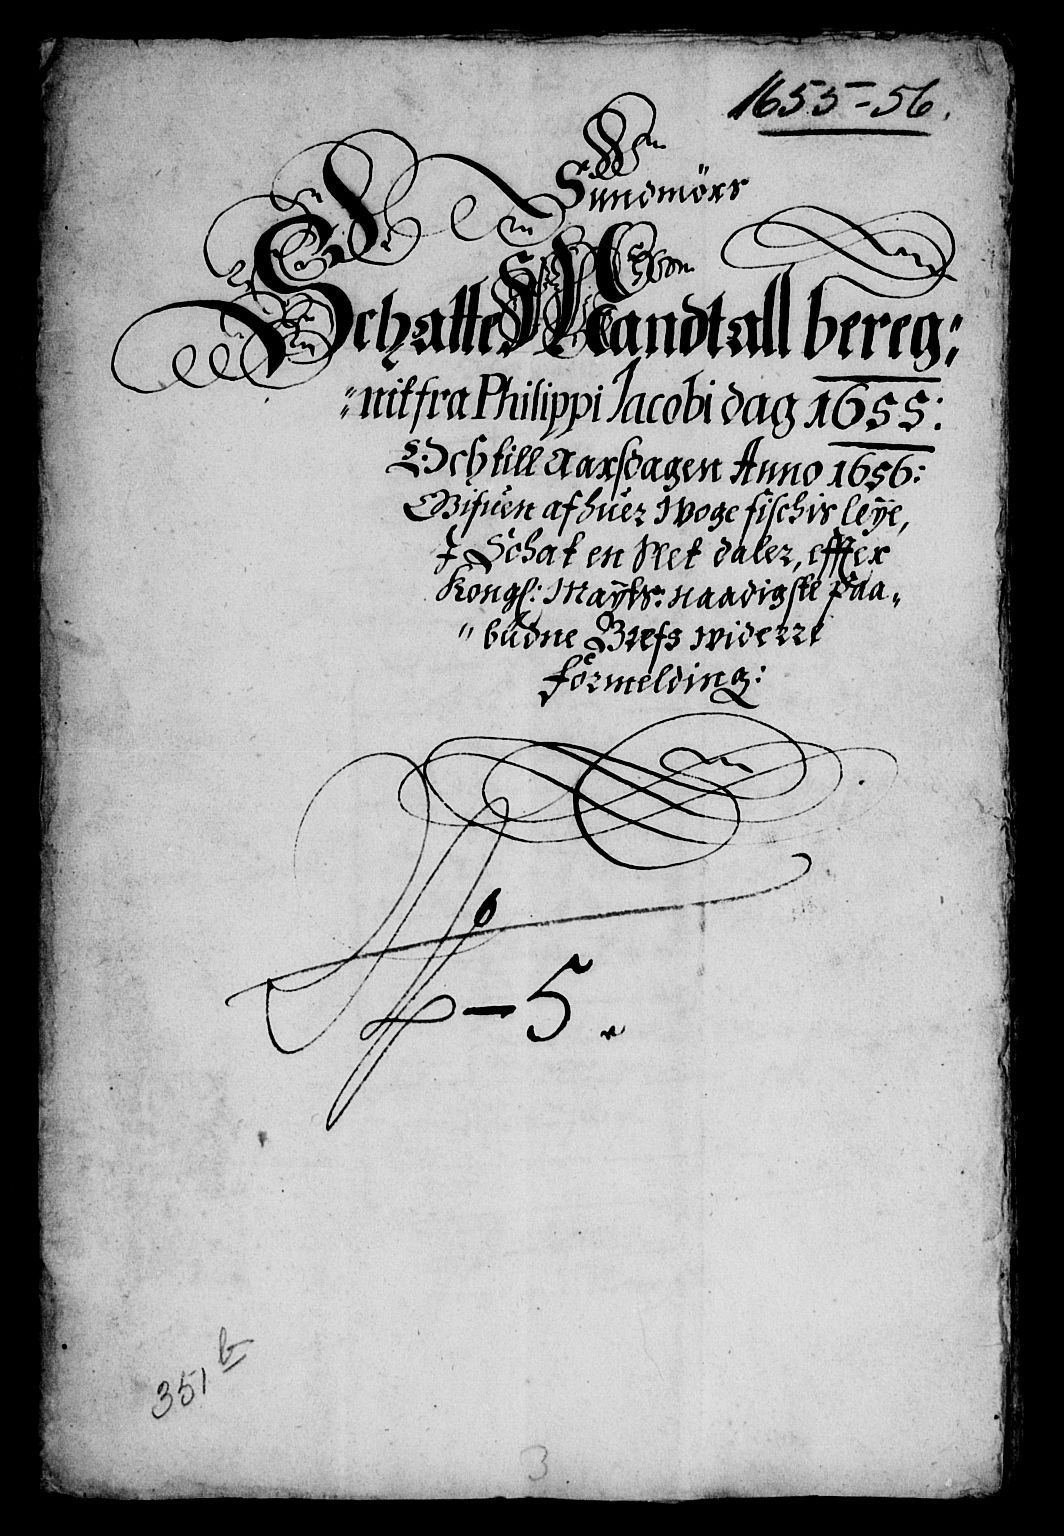 1655-56.
Sundmörs
Schatte Mandtall bereg:
:nit fra Philippi Jacobi dag 1655:
Och till Aarsdagen Anno 1656:
Gifuen af huer woge fischis leÿe,
J Schat en Slet daler, effter
Kongl: Maÿts: naadigste Paa„
„ budne Brefs widerre
formelding:
- 5.
351 b
3